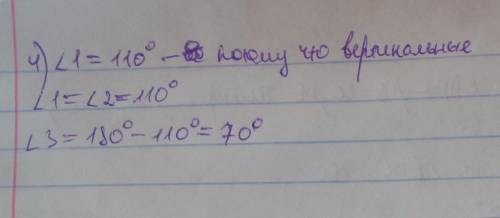 4) ∠1 = 110° - потому что вертикальные
∠1 = ∠2 = 110°
∠3 = 180° - 110° = 70°